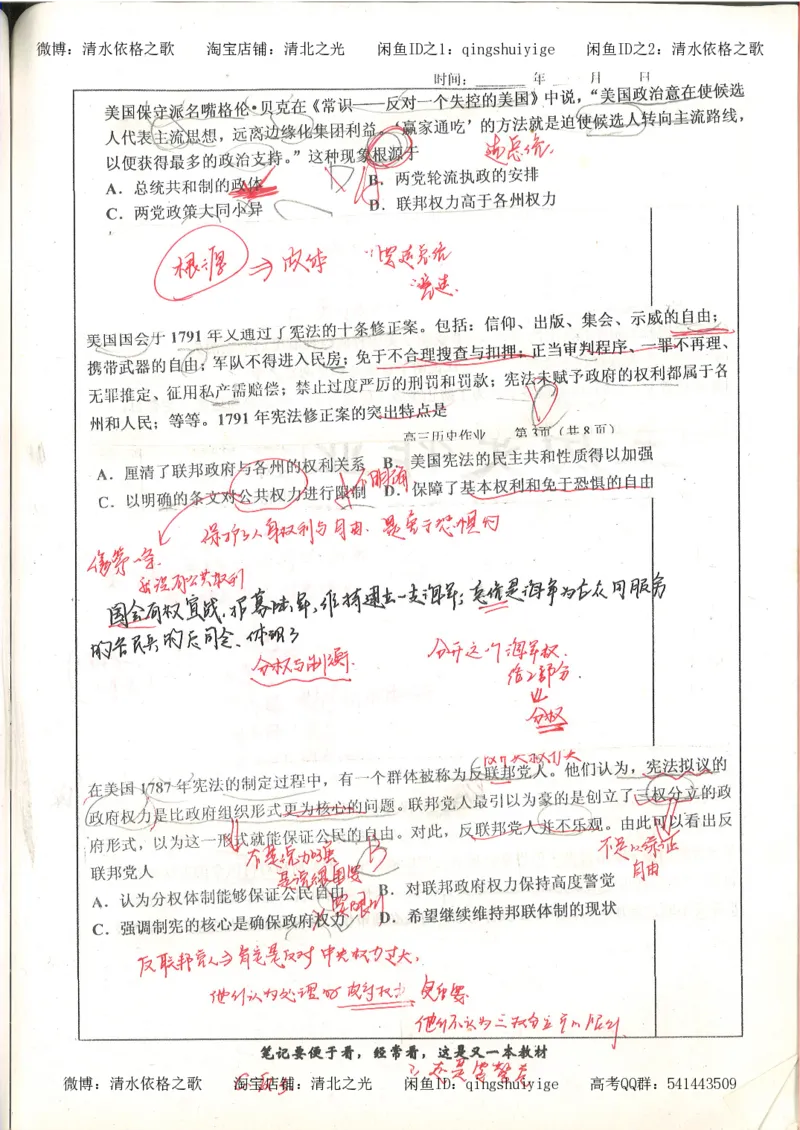 微博：清水依格之歌 淘宝店铺：清北之光 闲鱼ID之1：qingshuiyige 闲鱼ID之2：清水依格之歌
时间： 年 月 日
美国保守派名嘴格伦·贝克在《常识——反对一个失控的美国》中说，“美国政治意在使候选
人代表主流思想，远离边缘化集团利益。‘赢家通吃’的方法就是迫使候选人转向主流路线，
以便获得最多的政治支持。”这种现象根源于
选总统
A．总统共和制的政体 B．两党轮流执政的安排
C．两党政策大同小异 D．联邦权力高于各州权力
根源 ⇒ 政体
美国国会于 1791 年又通过了宪法的十条修正案。包括：信仰、出版、集会、示威的自由；
携带武器的自由；军队不得进入民房；免于不合理搜查与扣押；正当审判程序、一罪不再理、
无罪推定、征用私产需赔偿；禁止过度严厉的刑罚和罚款；宪法未赋予政府的权利都属于各
州和人民；等等。1791 年宪法修正案的突出特点是
D
高三历史作业 第3页（共8页）
A．厘清了联邦政府与各州的权利关系 B．美国宪法的民主共和性质得以加强
不明确
C．以明确的条文对公共权力进行限制 D．保障了基本权利和免于恐惧的自由
保护了人身权利与自由．是免于恐惧的
并没有公共权利
国会有权宣战、招募陆军，维持建立一支海军；
的各民兵的后司令、体现了
分权与制衡．
分开这个海军权．
给2部分．
分权
在美国 1787 年宪法的制定过程中，有一个群体被称为反联邦党人。他们认为，宪法拟议的
政府权力是比政府组织形式更为核心的问题。联邦党人最引以为豪的是创立了三权分立的政
府形式，以为这一形式就能保证公民的自由。对此，反联邦党人并不乐观。由此可以看出反
联邦党人
不足以保证
自由
B
A．认为分权体制能够保证公民自由 B．对联邦政府权力保持高度警觉
C．强调制宪的核心是确保政府权力 D．希望继续维持邦联体制的现状
要限制
反联邦党人当首先是反对中央权力过大，
他们认为处理好政府权力 更重要
他们不认为三权分立可以限制
笔记要便于看，经常看，这是又一本教材
微博：清水依格之歌 淘宝店铺：清北之光 闲鱼ID之1：qingshuiyige 高考QQ群：541443509